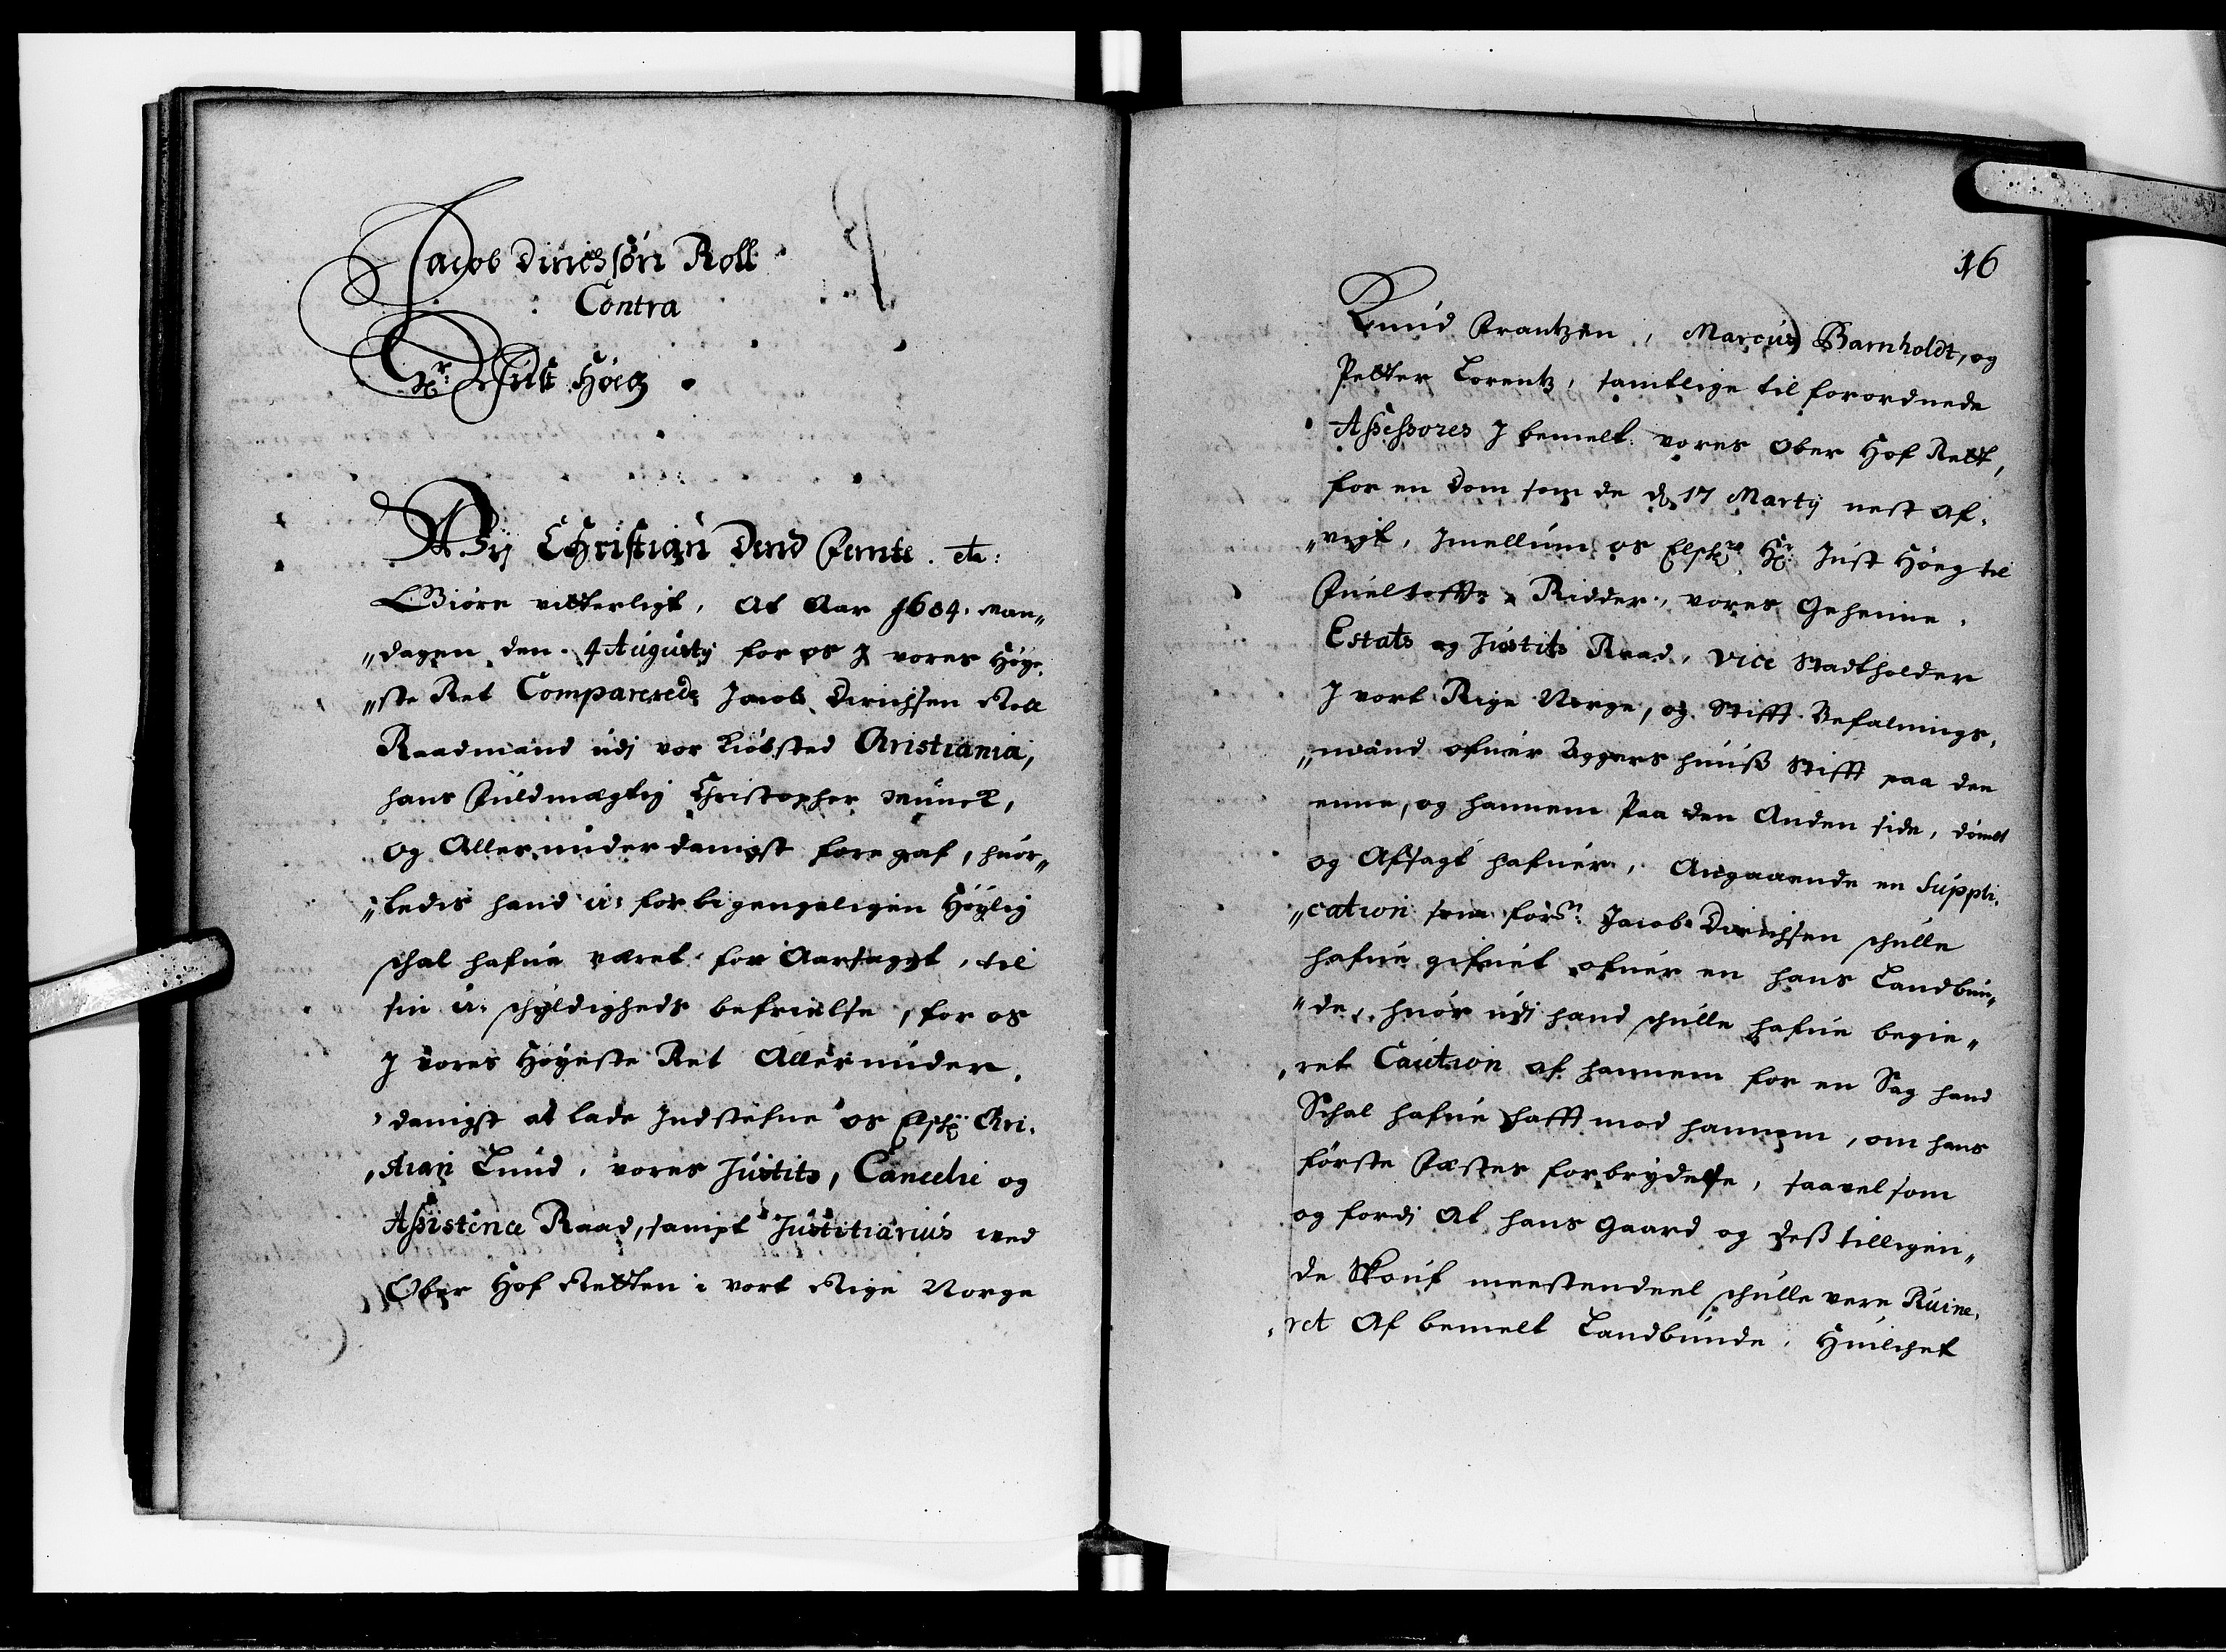 Jacob Dirichsön Roll
Contra
Hr: Just Höeg
Wij Christian Dend Femte. etc:
Giöre vitterligt, At Aar 1684. Man„
„dagen den. 4 Augustij for os J vores Höye,
„ste Ret Comparerede Jacob Dirichsen Roll
Raadmand udj vor Kiöbsted Christiania,
hans Fuldmægtig Christopher Munck,
og Allerunderdanigst foregaf, huor„
„ledis hand u: forbigengeligen Höylig
schal hafue været for Aarsaget, til
sin u: schyldigheds befrielse, for os
J vores Höyeste Ret Allerunder,
danigst at lade Indstefne os Elsche: Chri,
„stian Lund, vores Justits, Cancelie og
Assistence Raad, sampt Justitiarius wed
Ober Hof Retten i vort Rige Norge
16
Knud Frantzen, Marcus Barnholdt, og
Petter Lorentz, samtlige til forordnede
Assessores J bemelt. vores Ober Hof Rett,
for en Dom som de d. 17 Martij nest af,
„vigt, Jmellum os Elsche Hr: Just Höeg til
Fueltofte, Ridder, vores Geheime,
Estats og Justits Raad, Vice Stadtholder
J vort Rige Norge, og Stifft Befalnings,
„mand ofuer Aggers huuß Stifft paa den
enne, og hannem Paa den Anden side, dömt
og Afsagt hafuer, Angaaende en Suppli,
„cation som forn: Jacob Dirichsen schulle
hafue gifuet ofuer en hans Landbun„
„de, huor udj hand schulle hafue begie„
„ret Caution af hannem for en Sag hand
Schal hafue hafft mod hannem, om hans
förste Fæstes forbrydelse, saavelsom
og fordj At hans Gaard og deß tilligen„
de Skouf meestendeel schulle vere Ruine,
„ret Af bemelt Landbunde, Huilchet